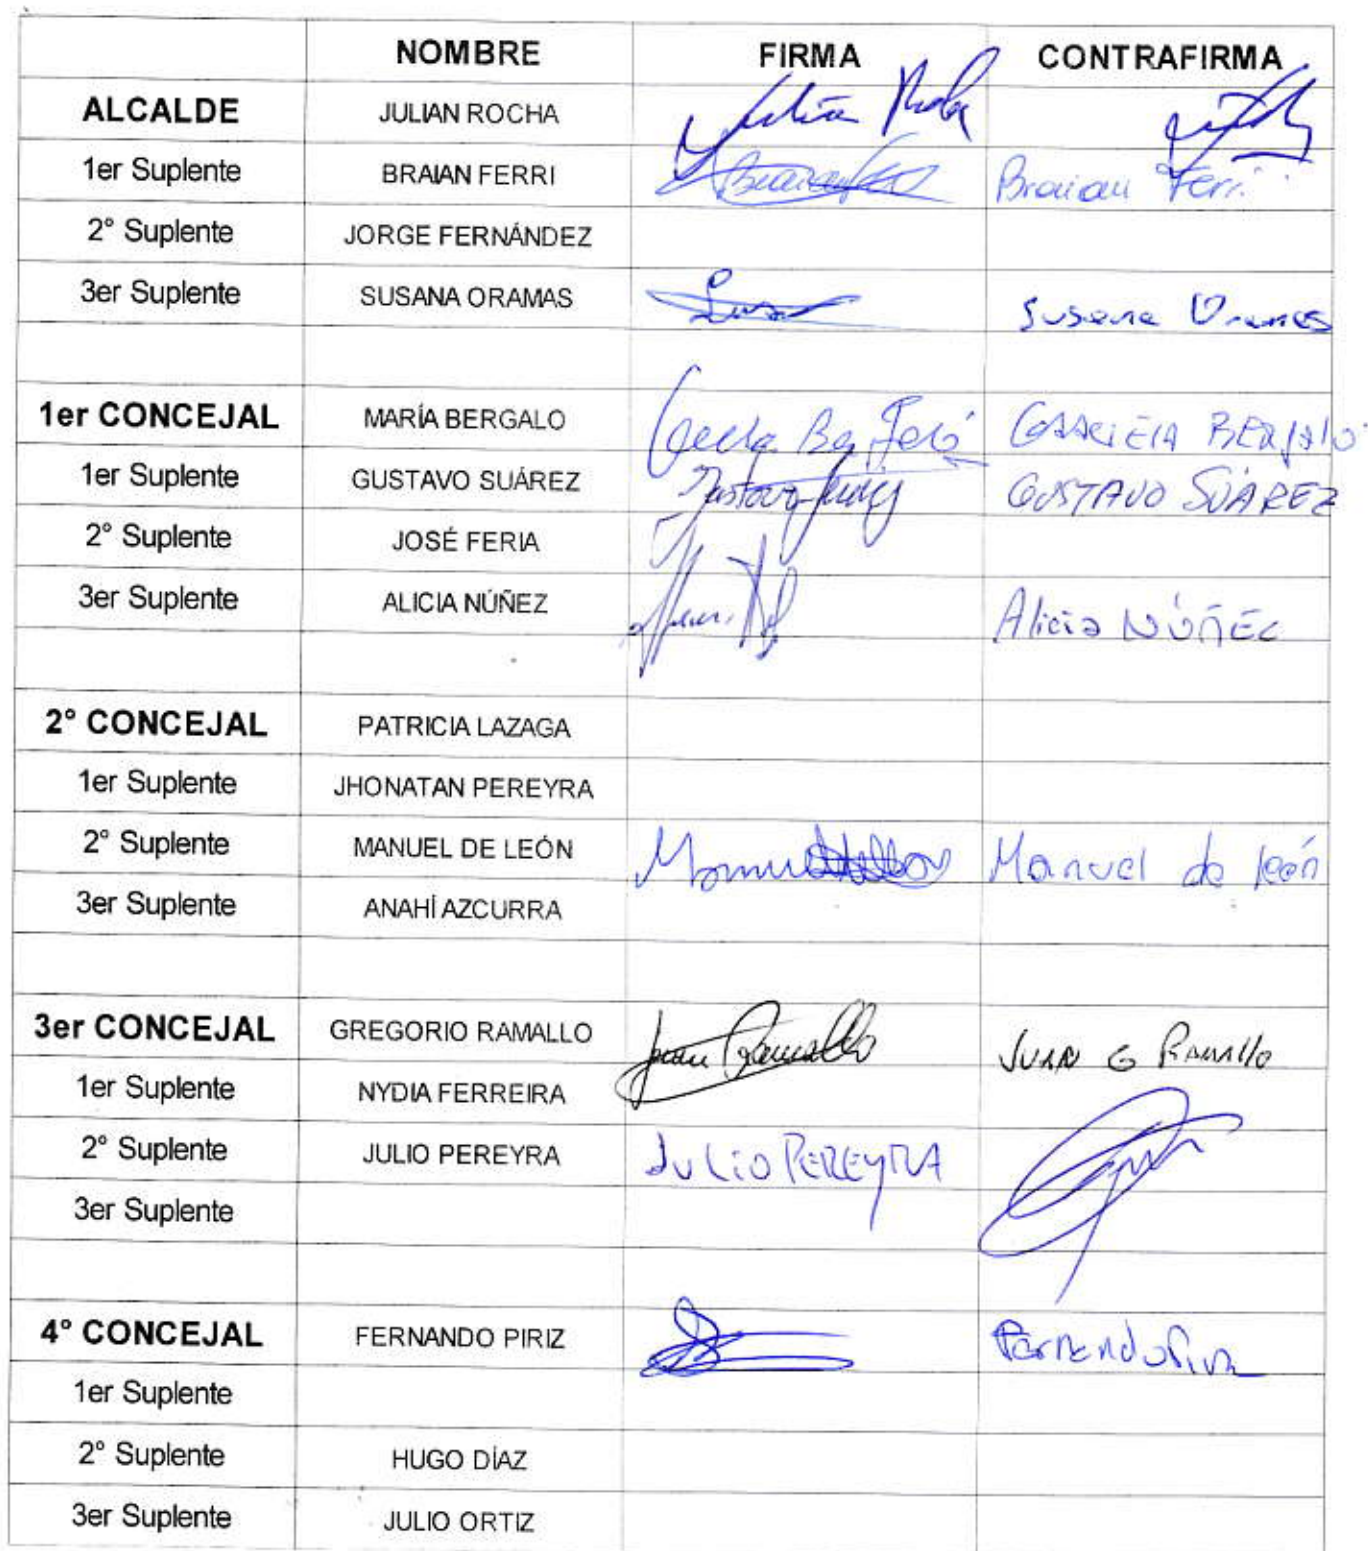 NOMBRE FIRMA CONTRAFIRMA
ALCALDE JULIAN ROCHA Julián Rocha
1er Suplente BRAIAN FERRI Braian Ferri
2° Suplente JORGE FERNÁNDEZ
3er Suplente SUSANA ORAMAS Susana Oramas
1er CONCEJAL MARÍA BERGALO GABRIELA BERGALO
1er Suplente GUSTAVO SUÁREZ Gustavo Suárez GUSTAVO SÚAREZ
2° Suplente JOSÉ FERIA
3er Suplente ALICIA NÚÑEZ Alicia NÚÑEZ
2° CONCEJAL PATRICIA LAZAGA
1er Suplente JHONATAN PEREYRA
2° Suplente MANUEL DE LEÓN Manuel de león
3er Suplente ANAHÍ AZCURRA
3er CONCEJAL GREGORIO RAMALLO Juan Ramallo JUAN G RAMALLO
1er Suplente NYDIA FERREIRA
2° Suplente JULIO PEREYRA JULIO PEREYRA
3er Suplente
4° CONCEJAL FERNANDO PIRIZ Fernando Piriz
1er Suplente
2° Suplente HUGO DÍAZ
3er Suplente JULIO ORTIZ